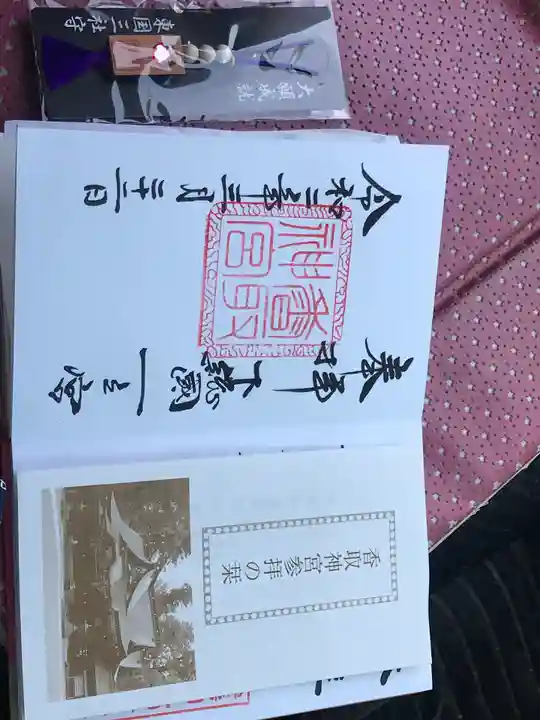 東国三社守
大願成就
奉拝 下総國一之宮
香取神宮
令和三年三月二十二日
香取神宮参拝の栞